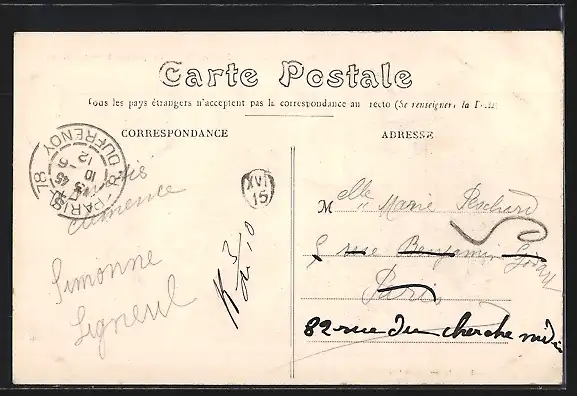 Carte Postale
Tous les pays étrangers n'acceptent pas la correspondance au recto (Se renseigner à la Poste)
CORRESPONDANCE
ADRESSE
PARIS - 78
R. DUFRENOY
12 - 6
10
45
XVI
15
Clémence
Simonne
Ligneul
Melle Marie Peschard
5 rue Benjamin Godard
Paris
82 rue du cherche midi